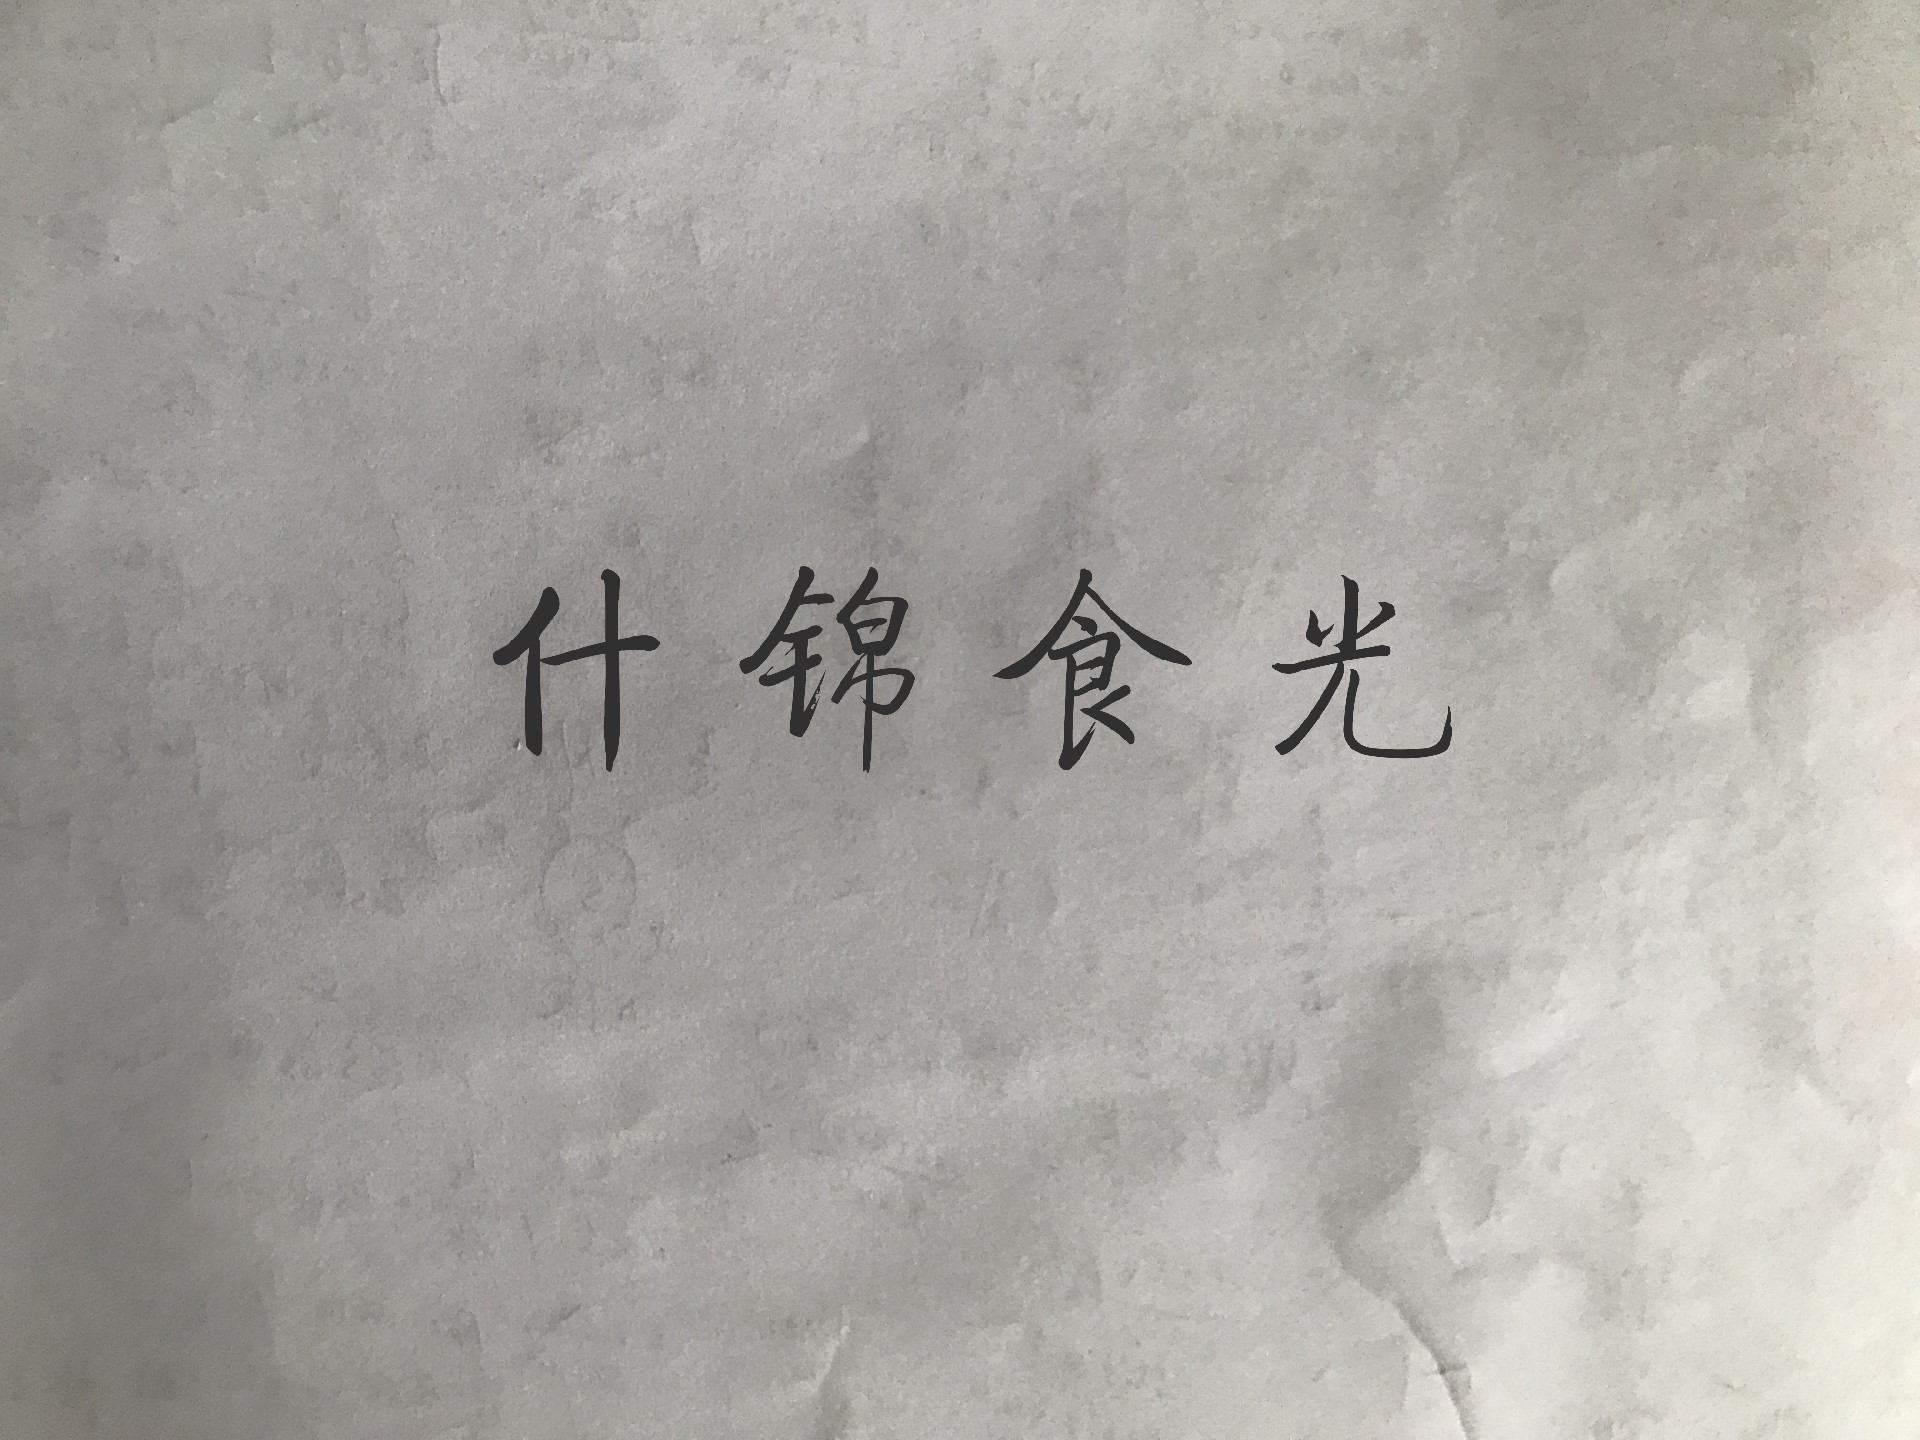 什锦食光